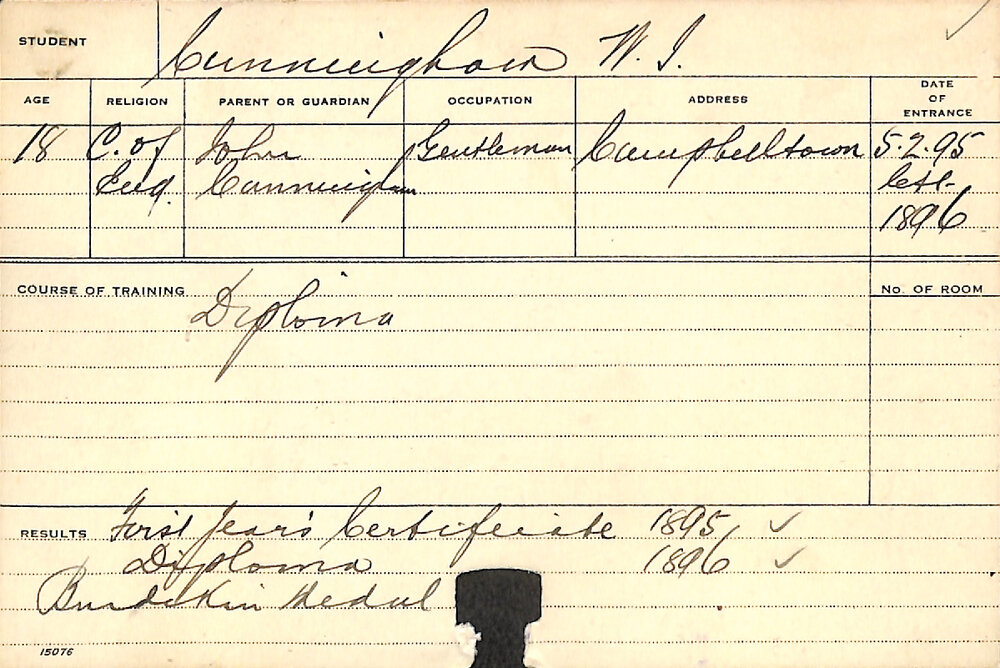 STUDENT Cunningham W. J.
AGE RELIGION PARENT OR GUARDIAN OCCUPATION ADDRESS DATE OF ENTRANCE
18 C. of John Gentleman Campbelltown 5.2.95
Eng. Cunningham left
1896
COURSE OF TRAINING Diploma No. OF ROOM
RESULTS First Year's Certificate 1895 ✓
Diploma 1896 ✓
Burdekin Medal
15076